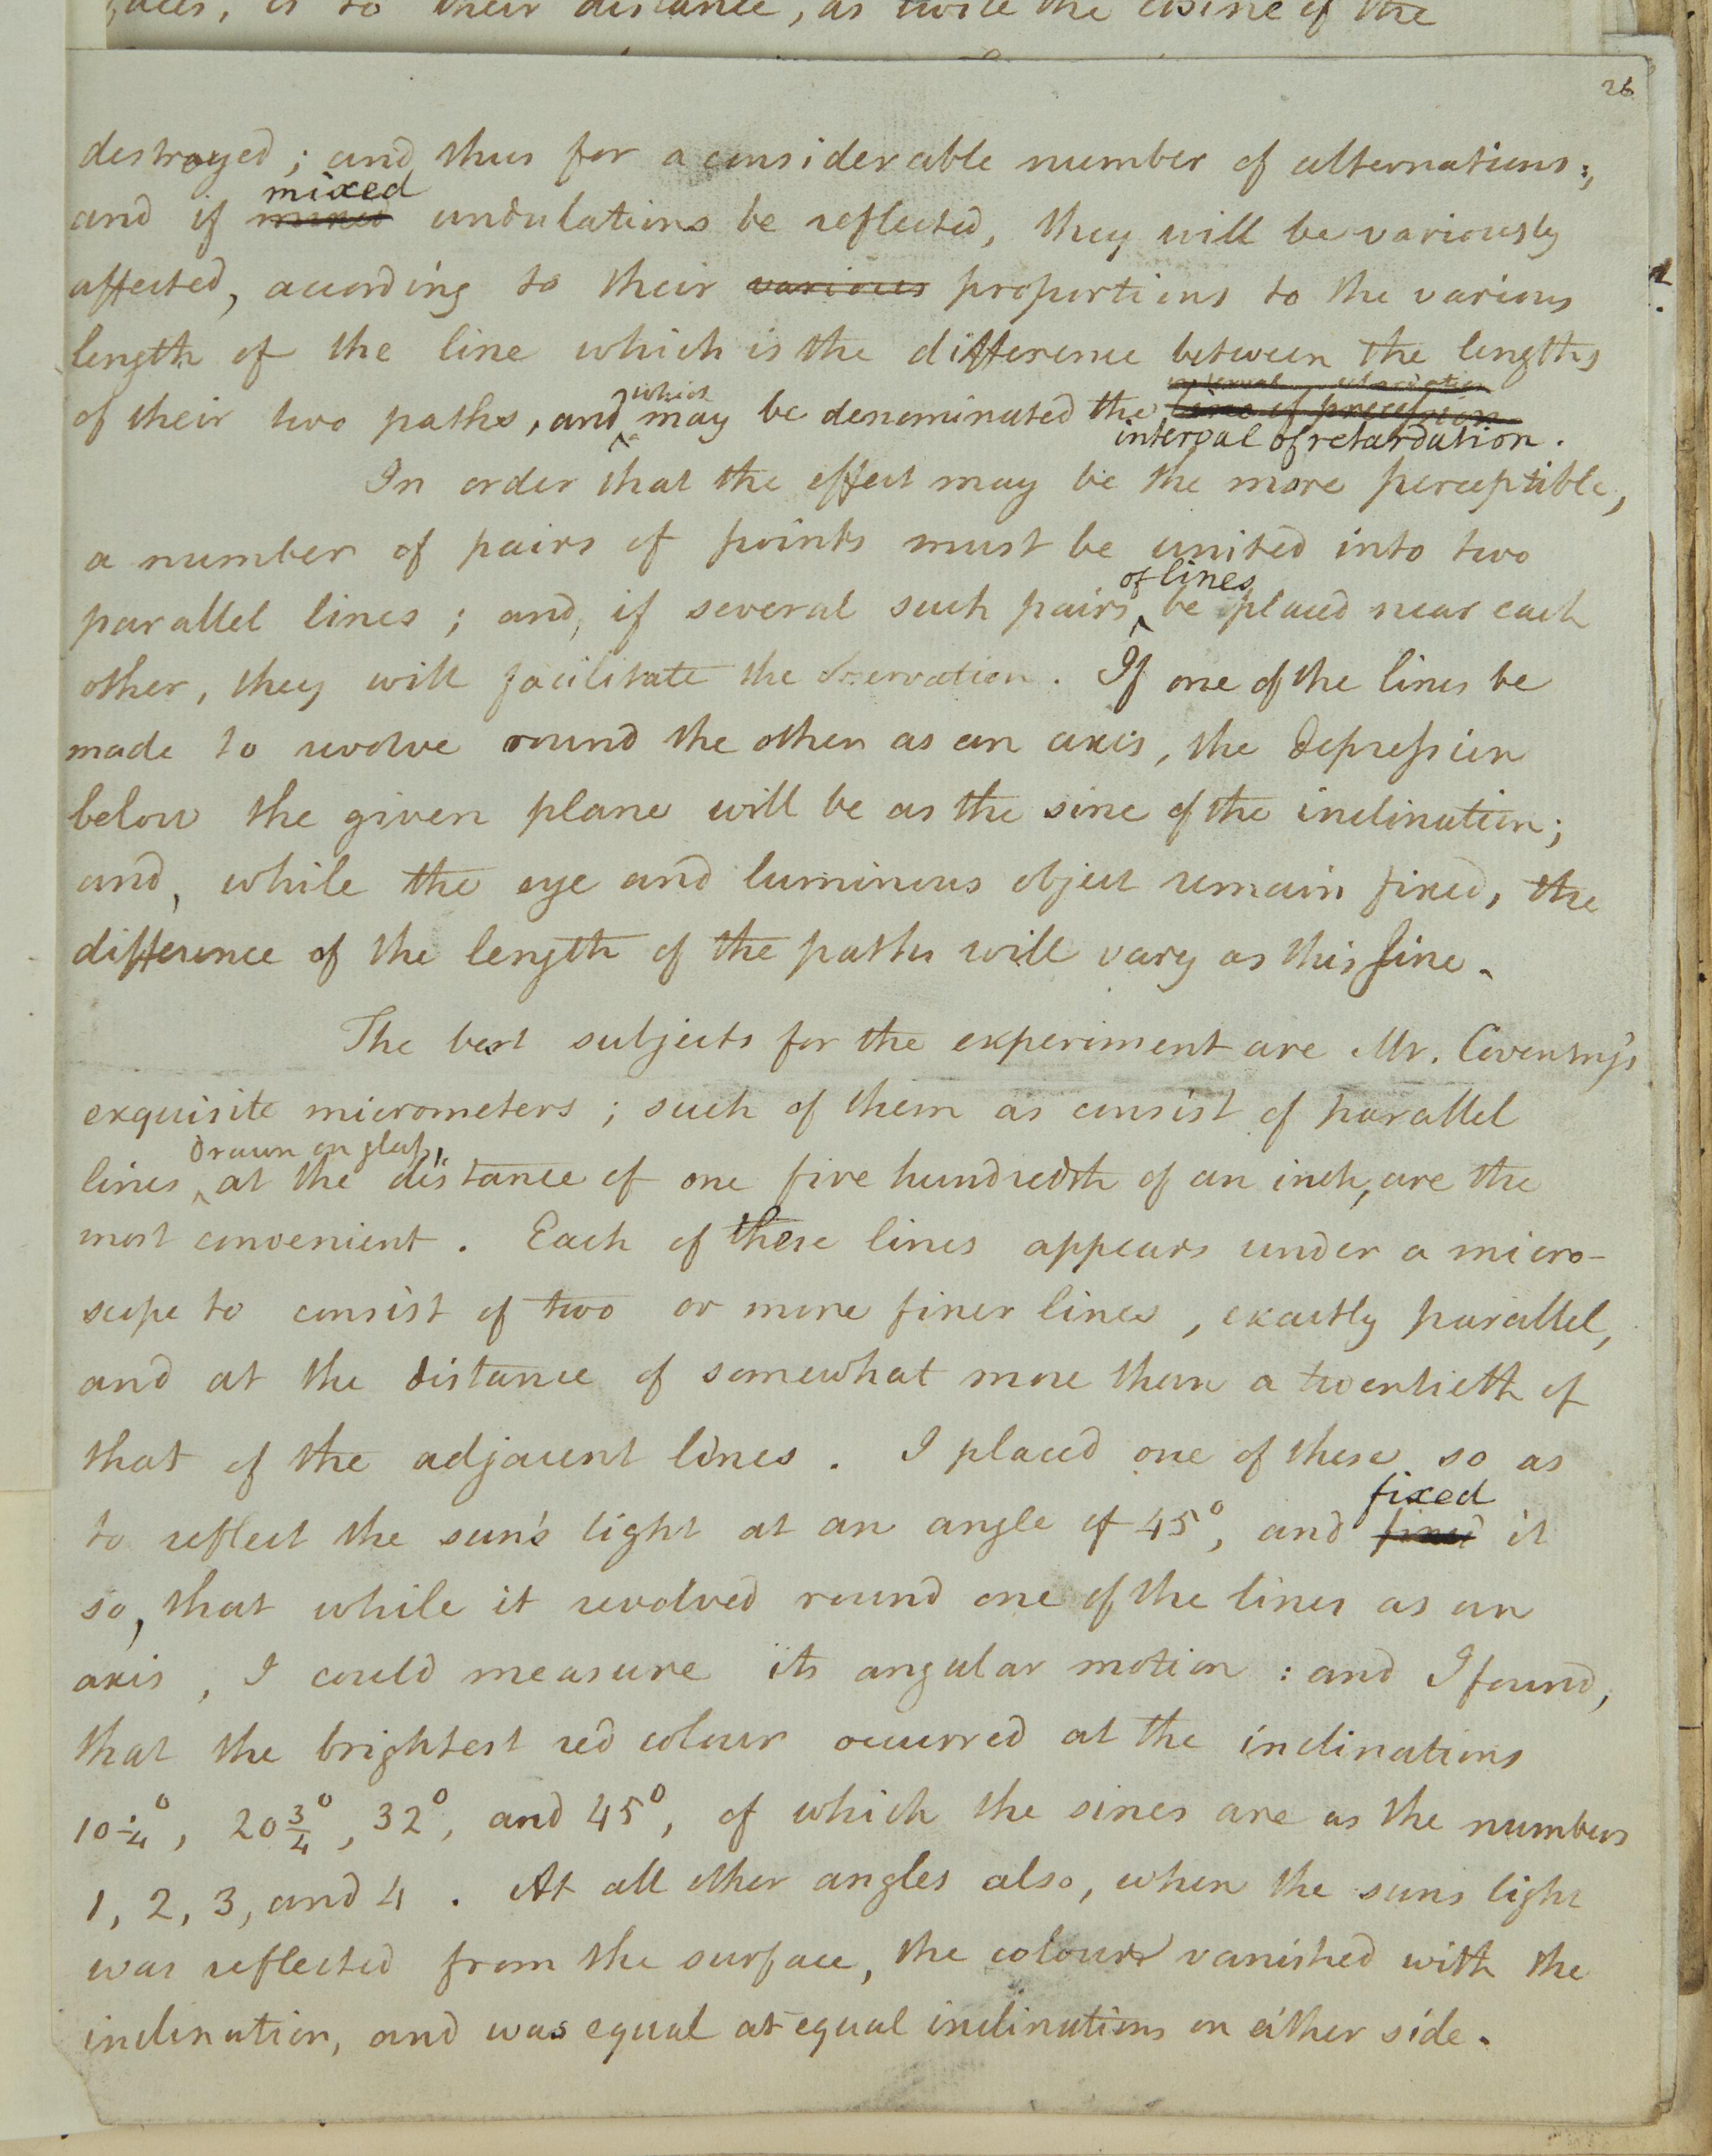 is to their distance, as twice the cosine of the
26
destroyed; and thus for a considerable number of alternations;
mixed
and if mixed undulations be reflected, they will be variously
affected, according to their various proportions to the various
length of the line which is the difference between the lengths
which
of their two paths, and may be denominated the line of precession
interval of retardation.
In order that the effect may be the more perceptible,
a number of pairs of points must be united into two
of lines
parallel lines; and, if several such pairs be placed near each
other, they will facilitate the observation. If one of the lines be
made to revolve round the other as an axis, the depression
below the given plane will be as the sine of the inclination;
and, while the eye and luminous object remain fixed, the
difference of the length of the paths will vary as this sine.
The best subjects for the experiment are Mr. Coventry's
exquisite micrometers; such of them as consist of parallel
drawn on glass,
lines at the distance of one five hundredth of an inch, are the
most convenient. Each of these lines appears under a micro-
scope to consist of two or more finer lines, exactly parallel,
and at the distance of somewhat more than a twentieth of
that of the adjacent lines. I placed one of these so as
fixed
to reflect the sun's light at an angle of 45°, and fixed it
so, that while it revolved round one of the lines as an
axis, I could measure its angular motion: and I found,
that the brightest red colour occurred at the inclinations
10 1/4°, 20 3/4°, 32°, and 45°, of which the sines are as the numbers
1, 2, 3, and 4. At all other angles also, when the suns light
was reflected from the surface, the colour vanished with the
inclination, and was equal at equal inclinations on either side.